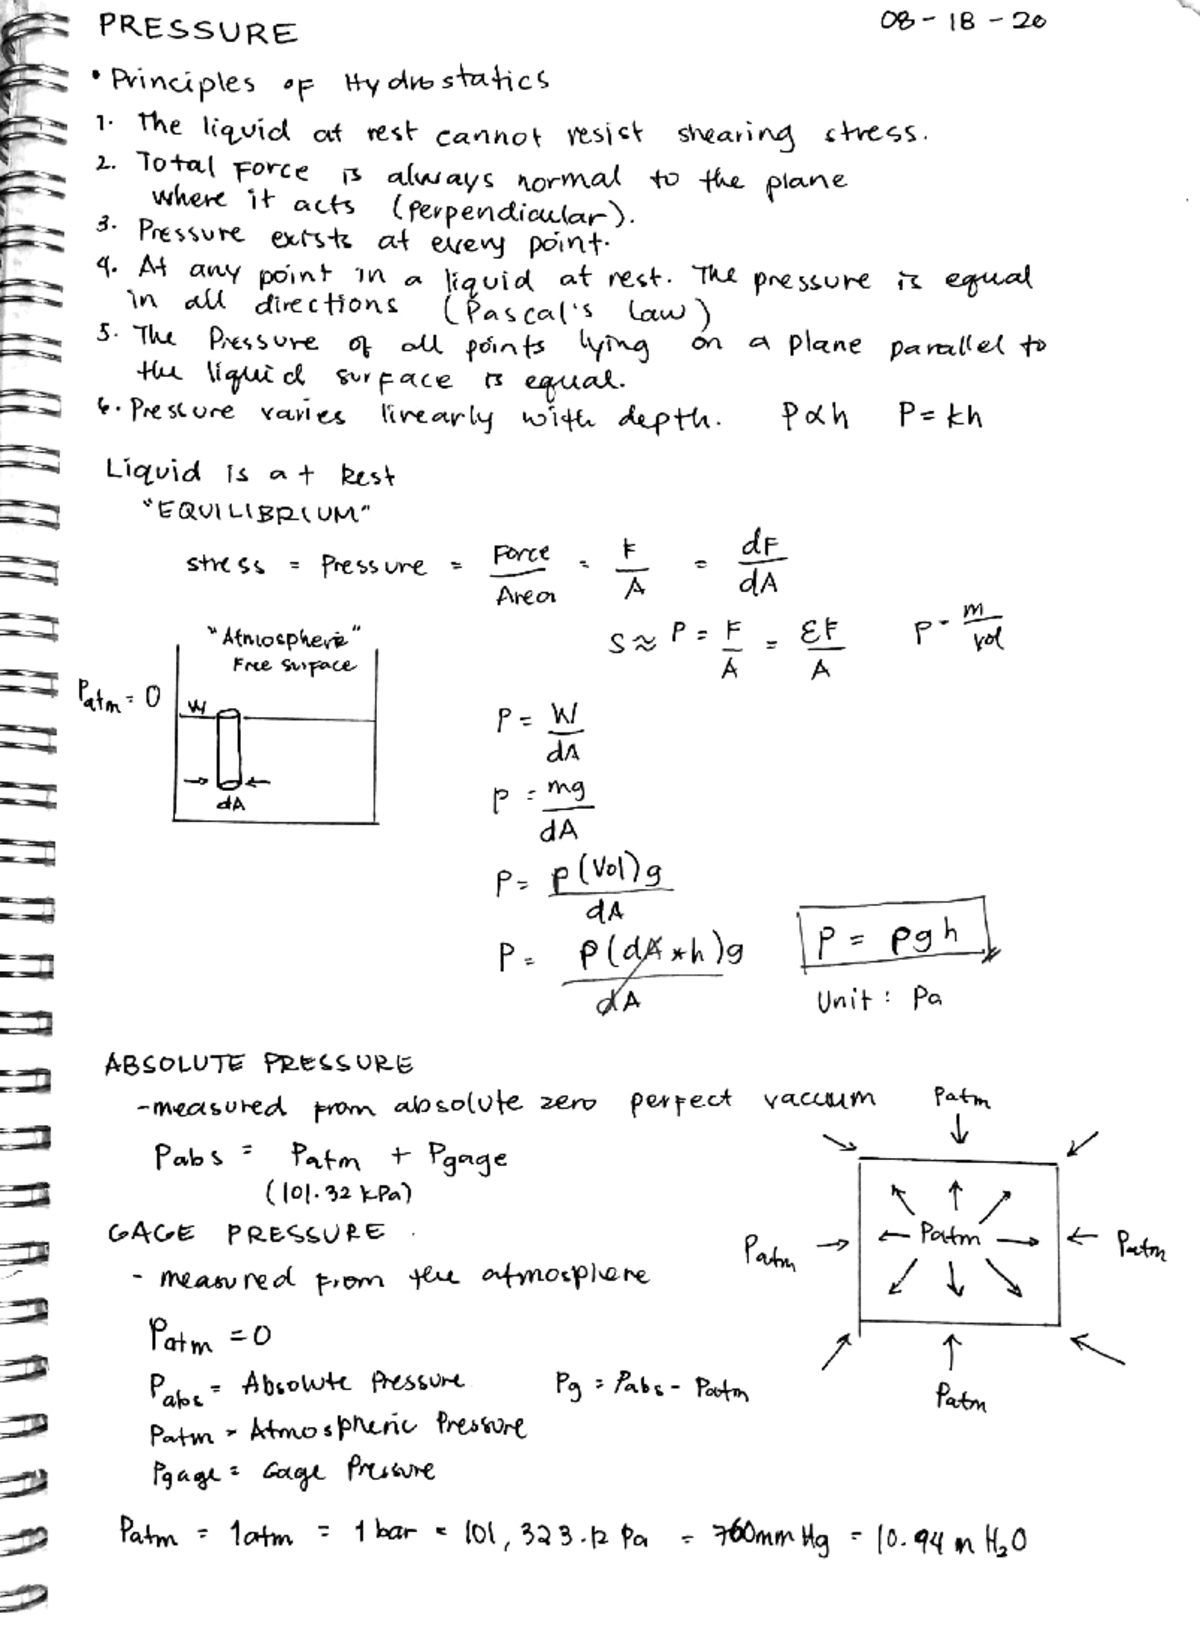 PRESSURE
08-18-20
• Principles of Hydrostatics
1. The liquid at rest cannot resist shearing stress.
2. Total Force is always normal to the plane
where it acts (perpendicular).
3. Pressure exists at every point.
4. At any point in a liquid at rest. The pressure is equal
in all directions (Pascal's law)
5. The Pressure of all points lying on a plane parallel to
the liquid surface is equal.
6. Pressure varies linearly with depth. P∝h P=kh
Liquid is at Rest
"EQUILIBRIUM"
stress = Pressure = Force/Area = F/A = dF/dA
S≈ P = F/A = ΣF/A ρ = m/vol
"Atmosphere"
Free surface
Patm = 0
W
dA
P = W/dA
P = mg/dA
P = ρ(Vol)g/dA
P = ρ(dA*h)g/dA
P = ρgh
Unit: Pa
ABSOLUTE PRESSURE
-measured from absolute zero perfect vaccum
Pabs = Patm + Pgage
(101.32 kPa)
GAGE PRESSURE.
- measured from the atmosphere
Patm = 0
Pabs = Absolute Pressure Pg = Pabs - Patm
Patm = Atmospheric Pressure
Pgage = Gage Pressure
Patm
Patm
Patm
Patm
Patm
Patm = 1atm = 1 bar = 101,323.12 Pa = 760mm Hg = 10.94 m H₂O